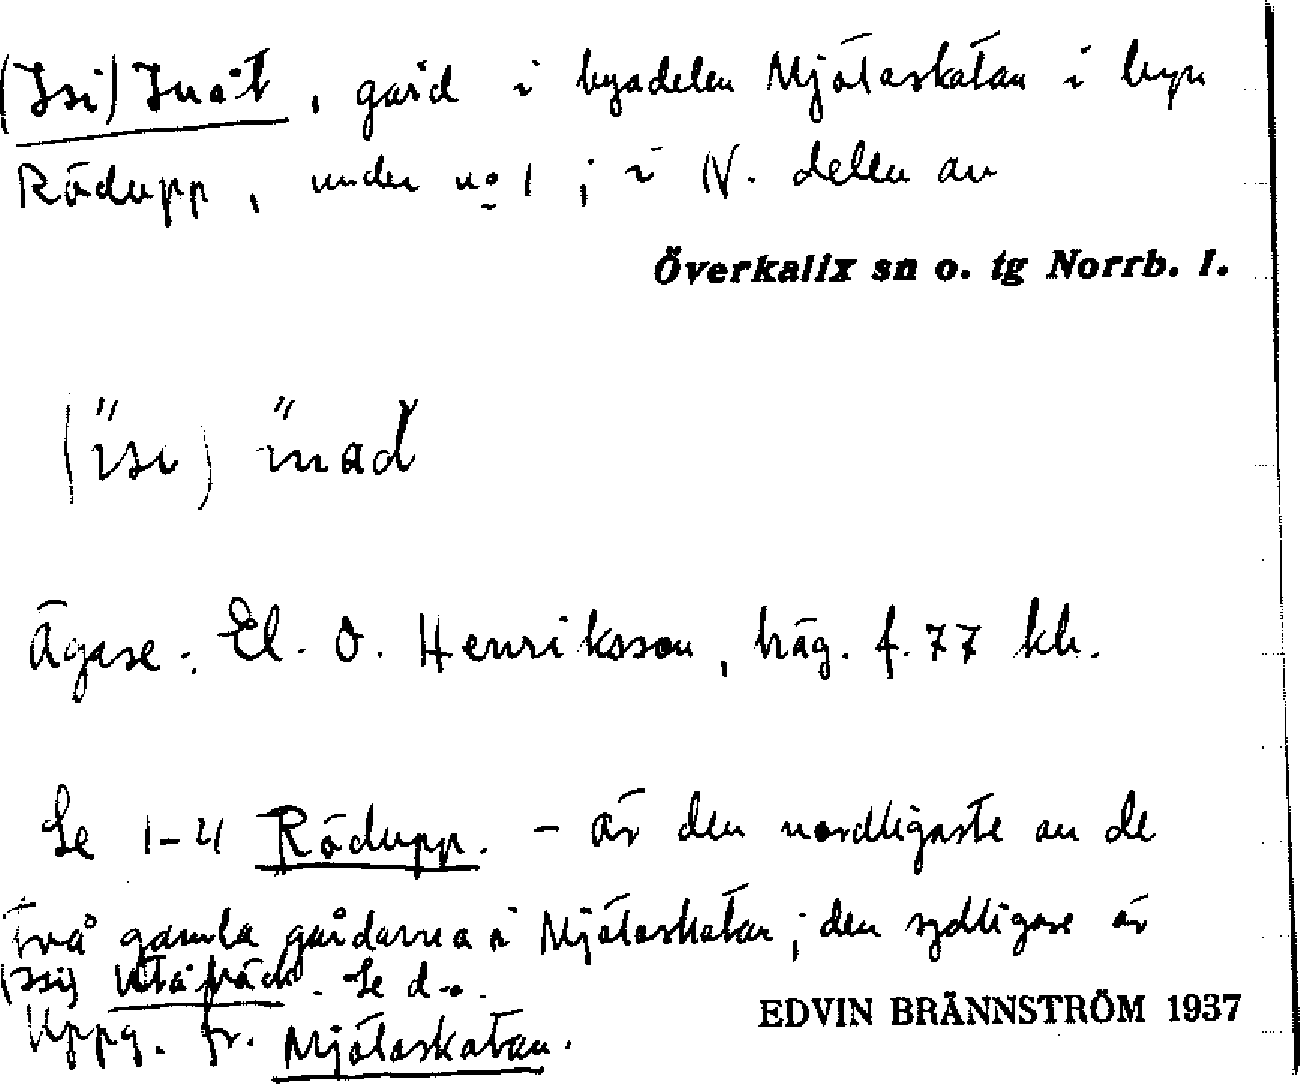 (Isi) Inåt, gård i byadelen Mjötaskatan i byn
Rödupp, under nº 1; i N. delen av
Överkalix sn o. tg Norrb. l.
(isi) inad
Ägare: El. O. Henriksson, häg. f. 77 kh.
Se 1-4 Rödupp. - är den nordligaste av de
två gamla gårdarna i Mjötaskatan; den sydligare är
(Isi) . Se d-o.
Uppg. fr. Mjötaskatan.
EDVIN BRÄNNSTRÖM 1937